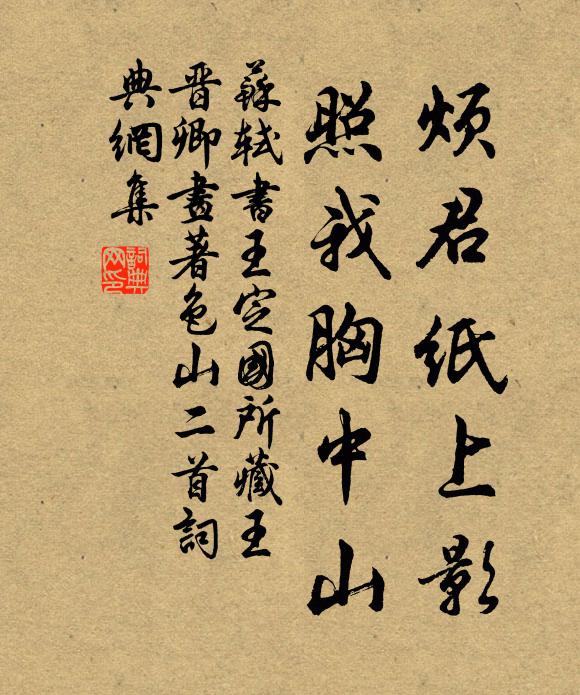 煩君紙上影
照我胸中山
蘇軾書王定國所藏王
晋卿畫著色山二首詞
典網集
詞典
网印